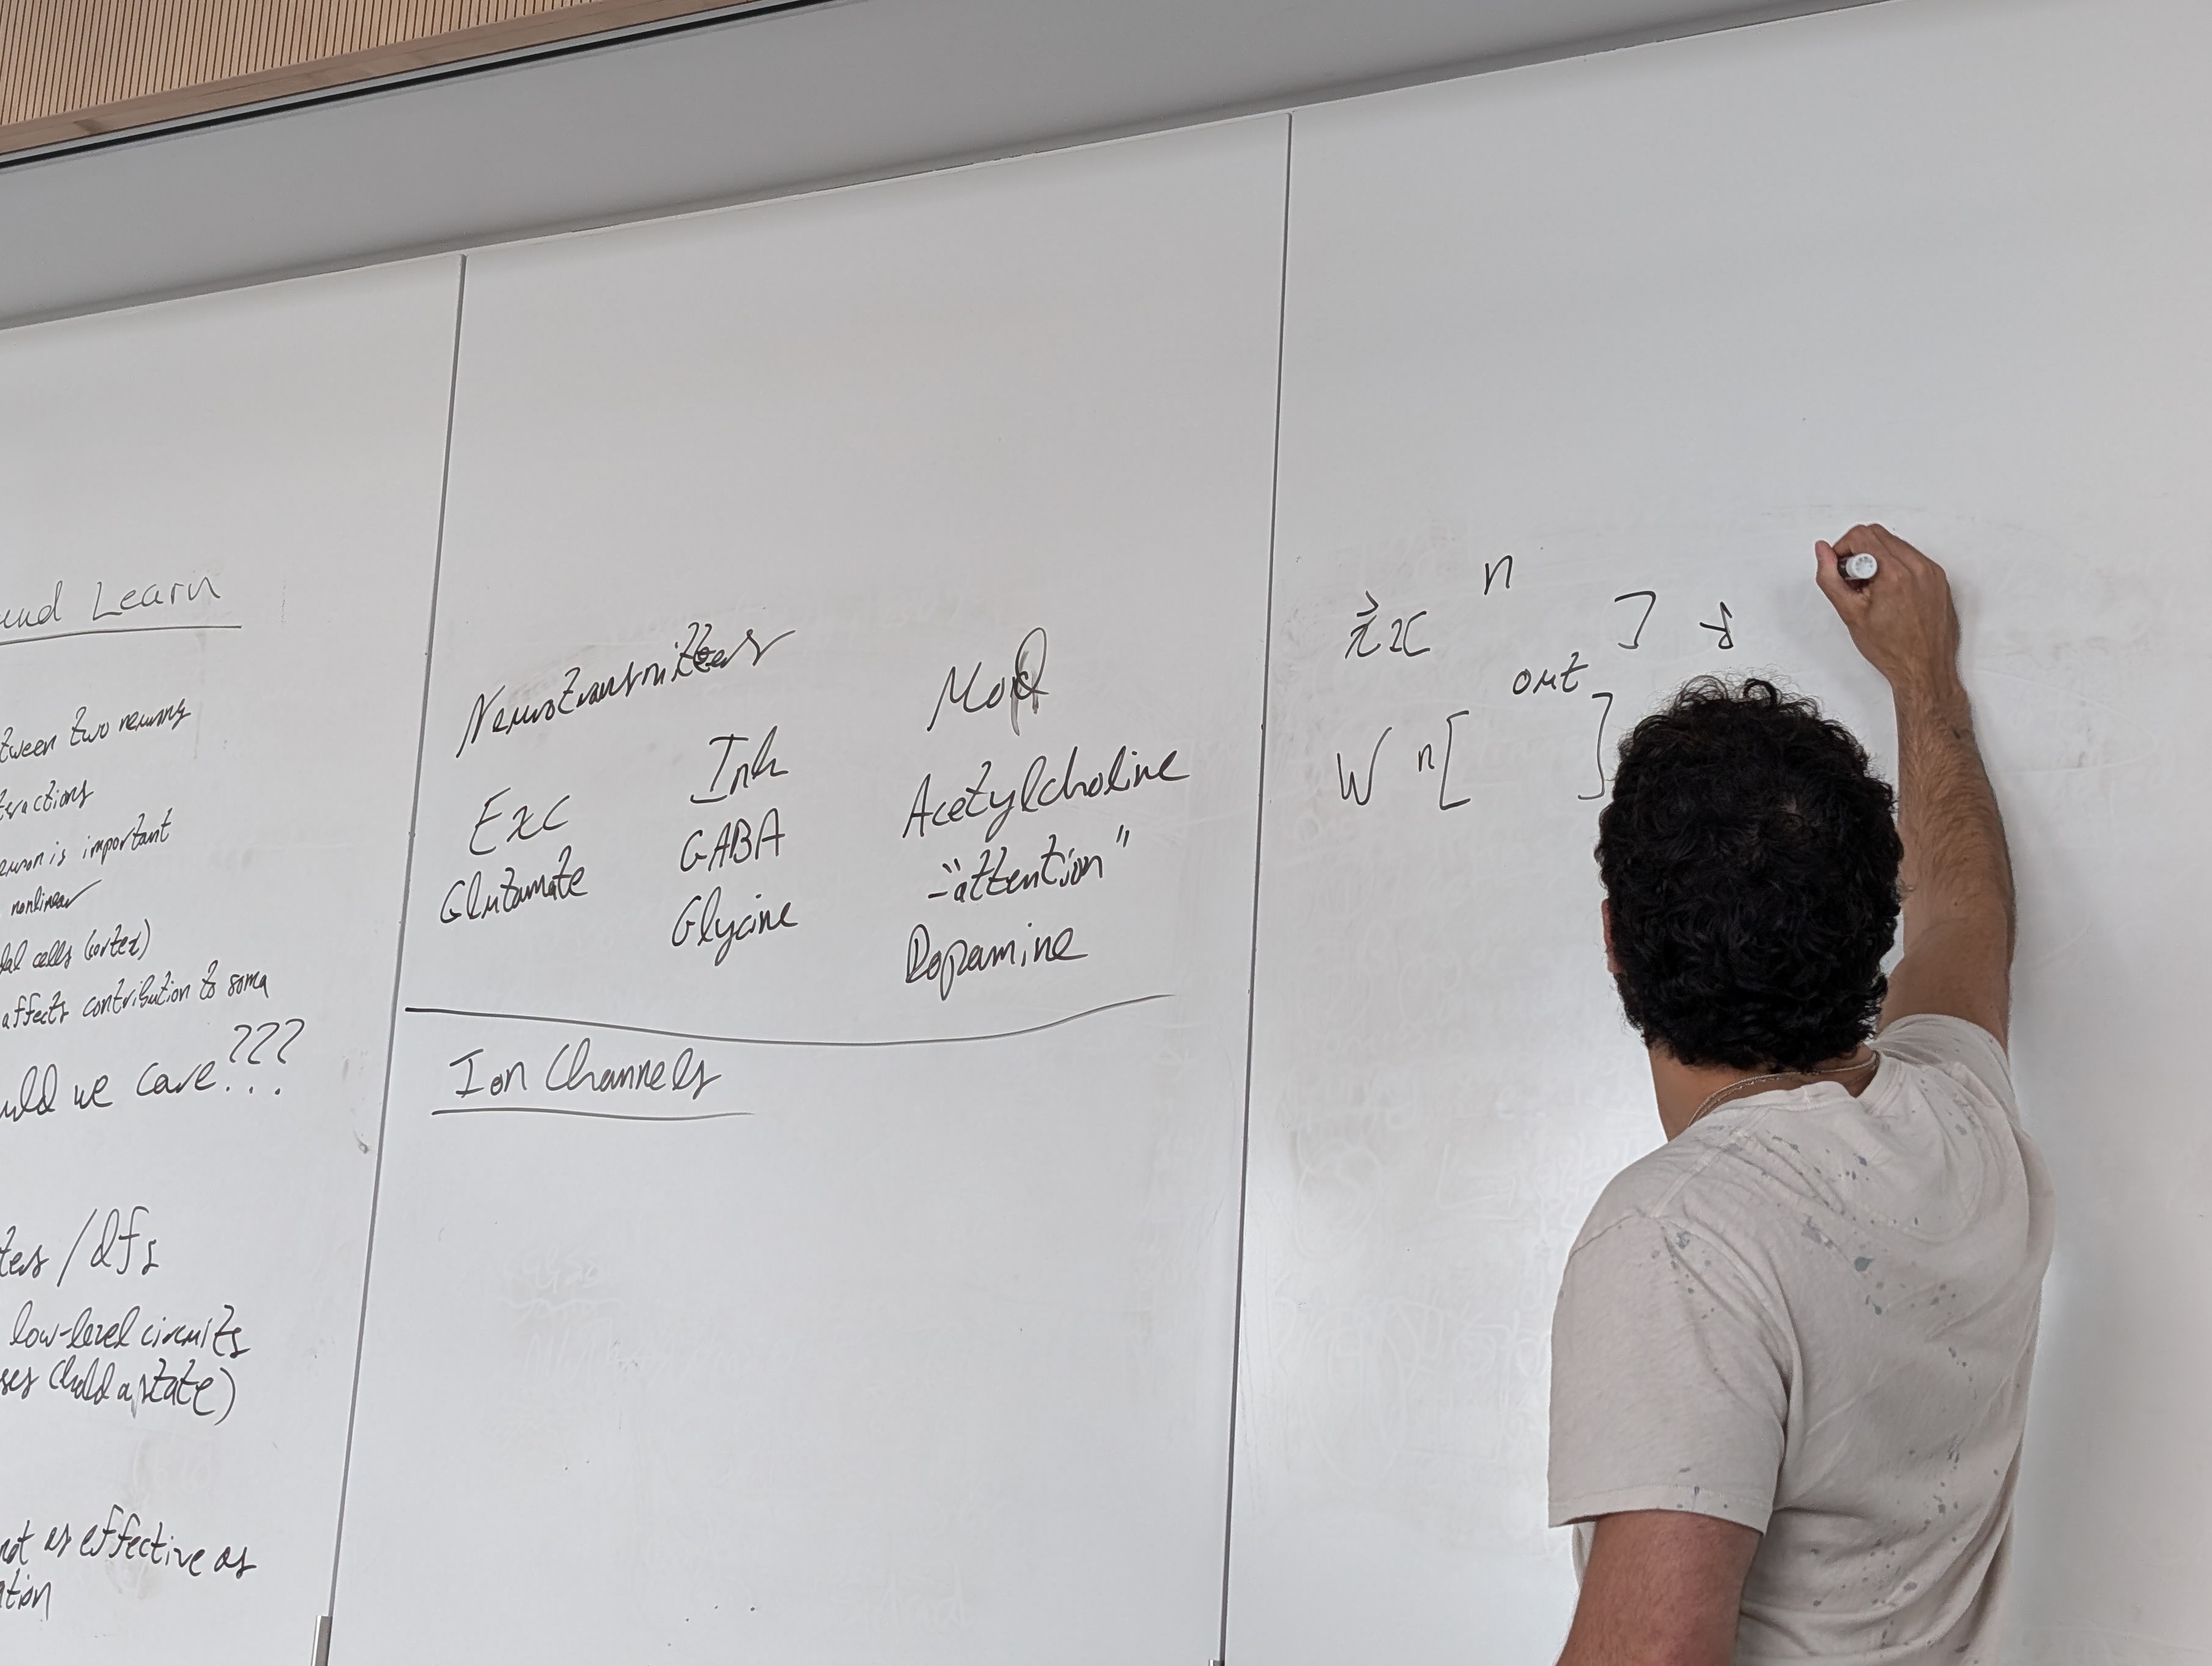 and Learn
tween two neurons
teractions
euron is important
nonlinear
dal cells (cortex)
affects contribution to soma
uld we care???
...
tes /dfs
low-level circuits
ses (hold a state)
not as effective as
ation
Neurotransmitters
Exc
Glutamate
Inh
GABA
Glycine
Mod
Acetylcholine
-"attention"
Dopamine
Ion Channels
n
out
]
W n[ ]